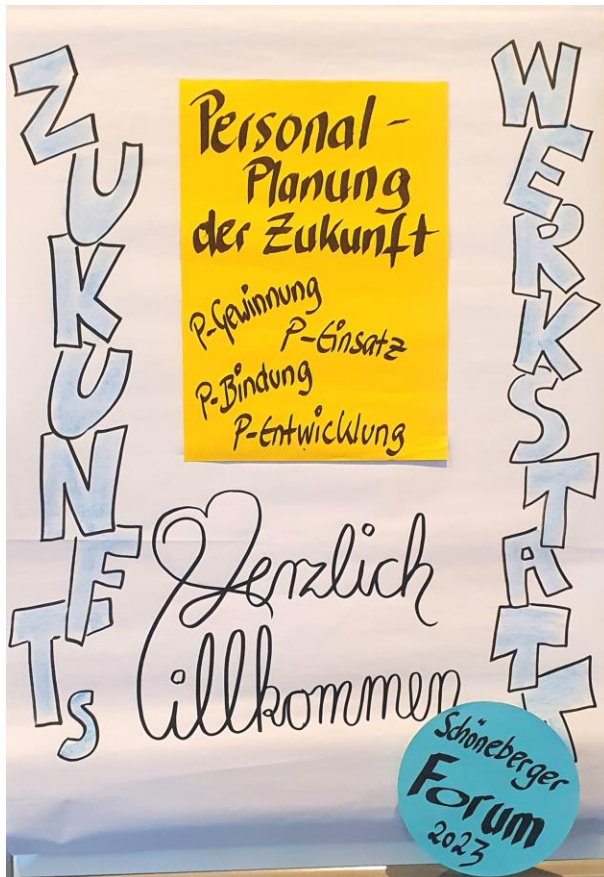 ZUKUNFTs
WERKSTATT
Personal-
Planung
der Zukunft
P-Gewinnung
P-Einsatz
P-Bindung
P-Entwicklung
Herzlich
Willkommen
Schöneberger
Forum
2023